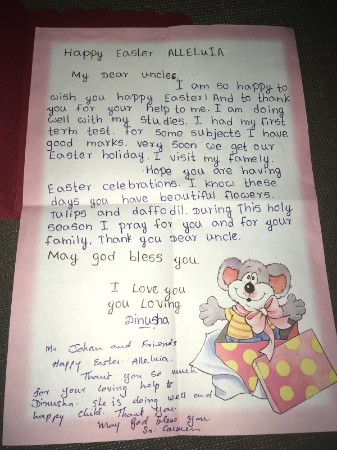 Happy Easter ALLELUIA
My Dear uncles,
I am so happy to
wish you happy Easter! And to thank
you for your help to me. I am doing
well with my studies. I had my first
term test. for some subjects I have
good marks. very soon we get our
Easter holiday. I visit my famely.
Hope you are having
Easter celebrations. I know these
days you have beautiful flowers.
Tulips and daffodil. During This holy
season I pray for you and for your
family. Thank you Dear uncle.
May god bless you.
I Love you
you Loving
Dinusha
Mr Johan and Friends
Happy Easter Alleluia.
Thank you so much
for your loving help to
Dinusha. She is doing well and
happy child. Thank you.
May God bless you.
Sr.